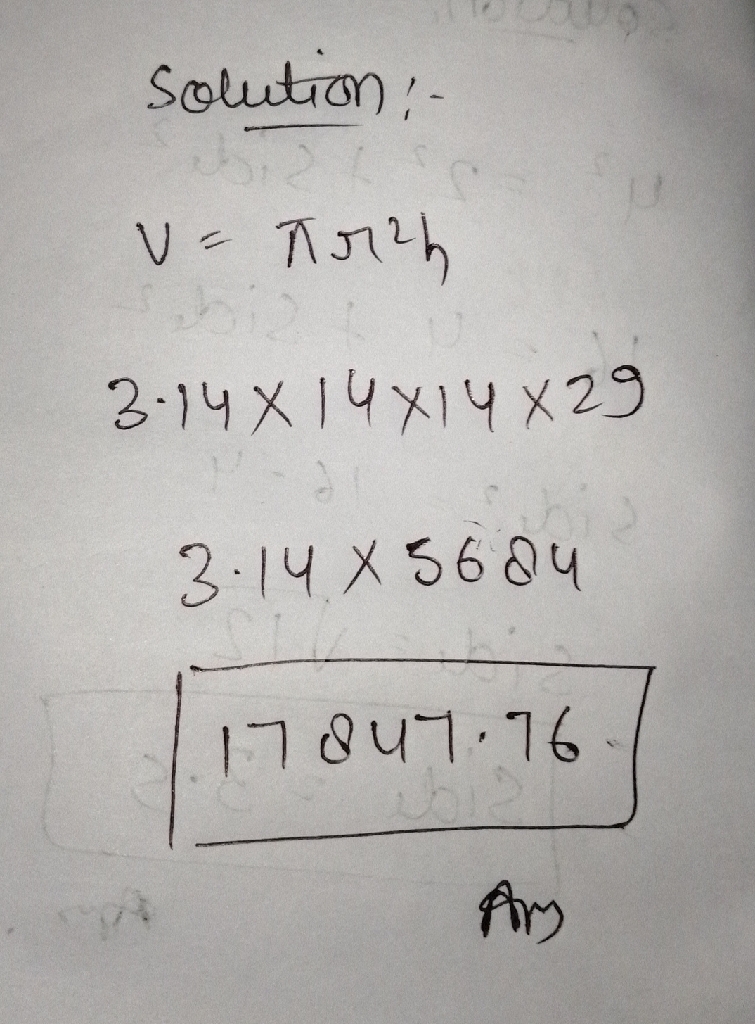 Solution :-
V = πr²h
3.14 X 14 X 14 X 29
3.14 X 5684
17847.76
Ans